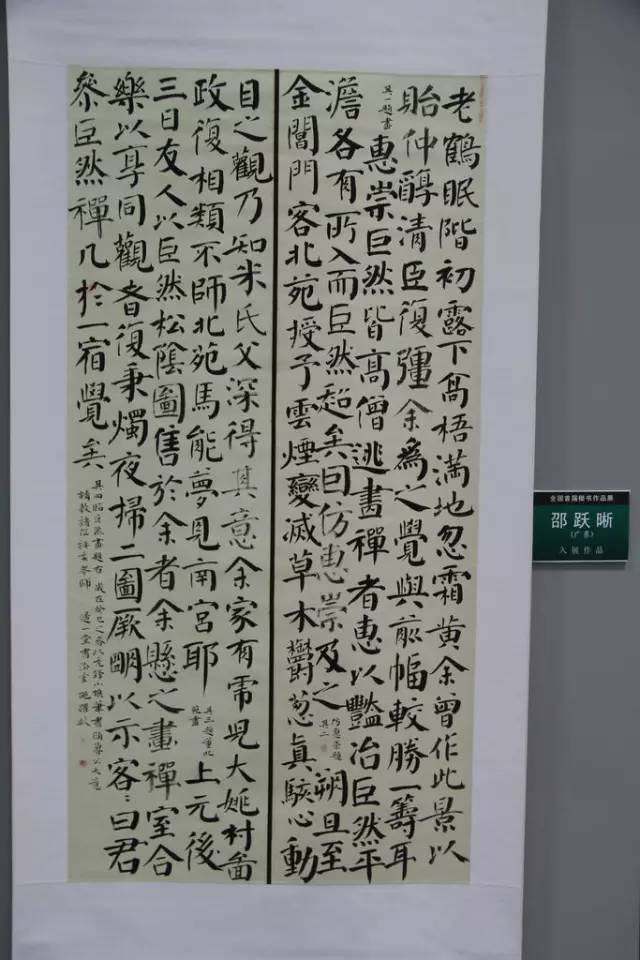 老鶴眠階初露下高梧滿地忽霜黃余曾作此景以
貽仲醇清臣復彊余爲之覺與前幅較勝一籌耳
其一題畫
惠崇巨然皆高僧逃畫禪者惠以豔冶巨然平
澹各有所入而巨然超矣因仿惠崇及之
仿惠崇題
其二
朔旦至
金閶門客北苑授予雲煙變滅草木鬱蔥真駭心動
目之觀乃知米氏父深得其意余家有虎兒大姚村圖
政復相類不師北苑焉能夢見南宮耶
其三題董北
苑畫
上元後
三日友人以巨然松陰圖售於余者余懸之畫禪室合
樂以享同觀者復秉燭夜掃二圖厥明以示客〻曰君
參巨然禪几於一宿覺矣
其四臨巨然畫題右 歲在癸巳之春
請教諸位評委老師
全国首届楷书作品展
邵跃晰
(广东)
入展作品